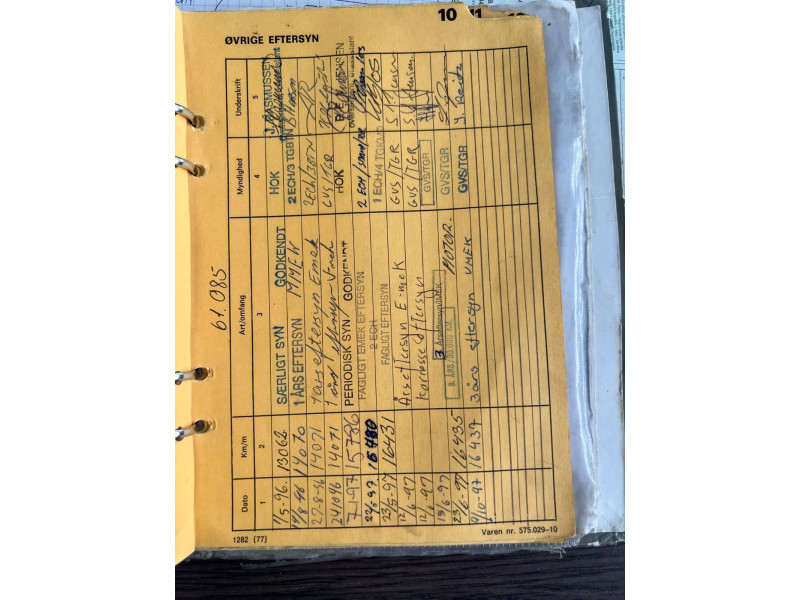 10 11 12
ØVRIGE EFTERSYN
61.085
Dato Km/m Art/omfang Myndighed Underskrift
1 2 3 4 5
1/5-96. 13062 SÆRLIGT SYN GODKENDT HOK J. RASMUSSEN
14070 1 ÅRS EFTERSYN MMEK 2 ECH/3 TGBTN
27-8-96 14071 1 års eftersyn Emek 2ECH/3BTN
24/10 96 14071 1 års eftersyn Vmek GVS/TGR
7-1-97 15786 PERIODISK SYN / GODKENDT HOK
22/5 97 16480 FAGLIGT EMEK EFTERSYN 2 ECH
2 ECH
23/5-97 16431 FAGLIGT EFTERSYN 1 ECH/4 TGKM
12/6-97 Års eftersyn E-mek GVS/TGR S. Jensen
12/6-97 Karosse eftersyn GVS/TGR S. Jensen
13/6-97 3 GVS/TGR
23/6-97 16435 8. ÅRS 30.000 KM. MOTOR. GVS/TGR
9/10-97 16437 3 års eftersyn VMEK GVS/TGR
1282 (77) Varen nr. 575.029-10